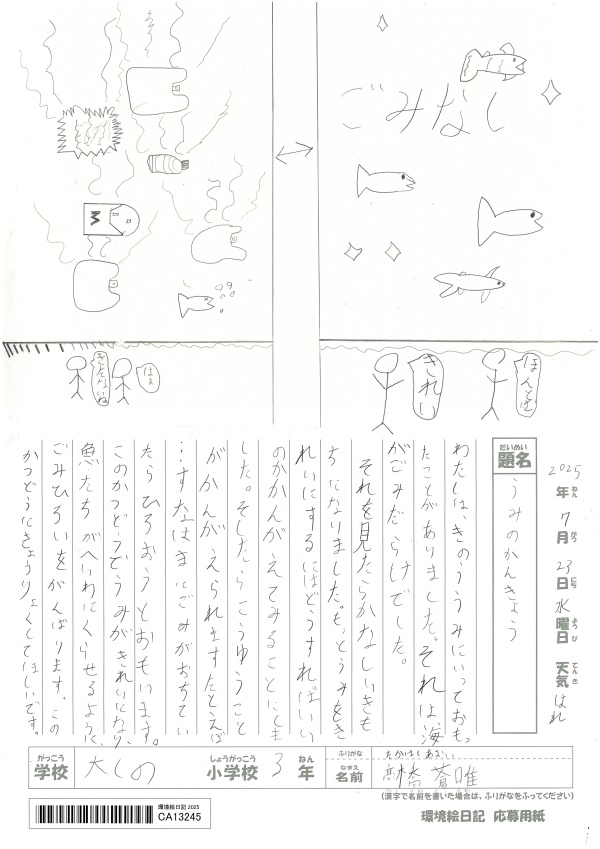 ごみなし
M
きたないね
ほぁ
きれい
ほんとだ
2025年7月23日水曜日 天気はれ
ねん がつ にち ようび てんき
だいめい
題名 うみのかんきょう
わたしは、きのううみにいっておもっ
たことがありました。それは、海
がごみだらけでした。
それを見たらかなしいきも
ちになりました。もっとうみをき
れいにするにはどうすればいい
のかかんがえてみることにしま
した。そしたらこうゆうこと
がかんがえられますたとえば
…すなはまにごみがおちてい
たらひろおうとおもいます。
このかつどうでうみがきれいになり、
魚たちがへいわにくらせるように、
ごみひろいをがんばります。この
かつどうにきょうりょくしてほしいです。
がっこう しょうがっこう ねん
学校 大しの 小学校 3年
ふりがな たかはしあおい
なまえ
名前 髙橋 蒼唯
(漢字で名前を書いた場合は、ふりがなをふってください)
環境絵日記 2025
CA13245
環境絵日記 応募用紙